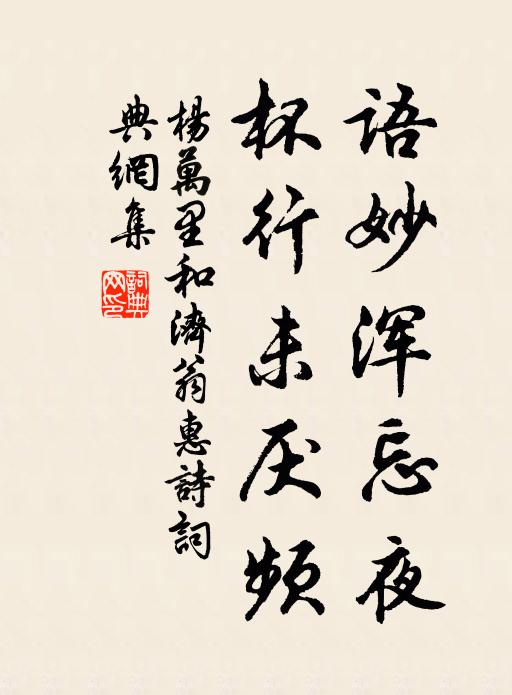 语妙浑忘夜
杯行未厌频
楊萬里和濟翁惠詩詞
典網集
詞典
网印